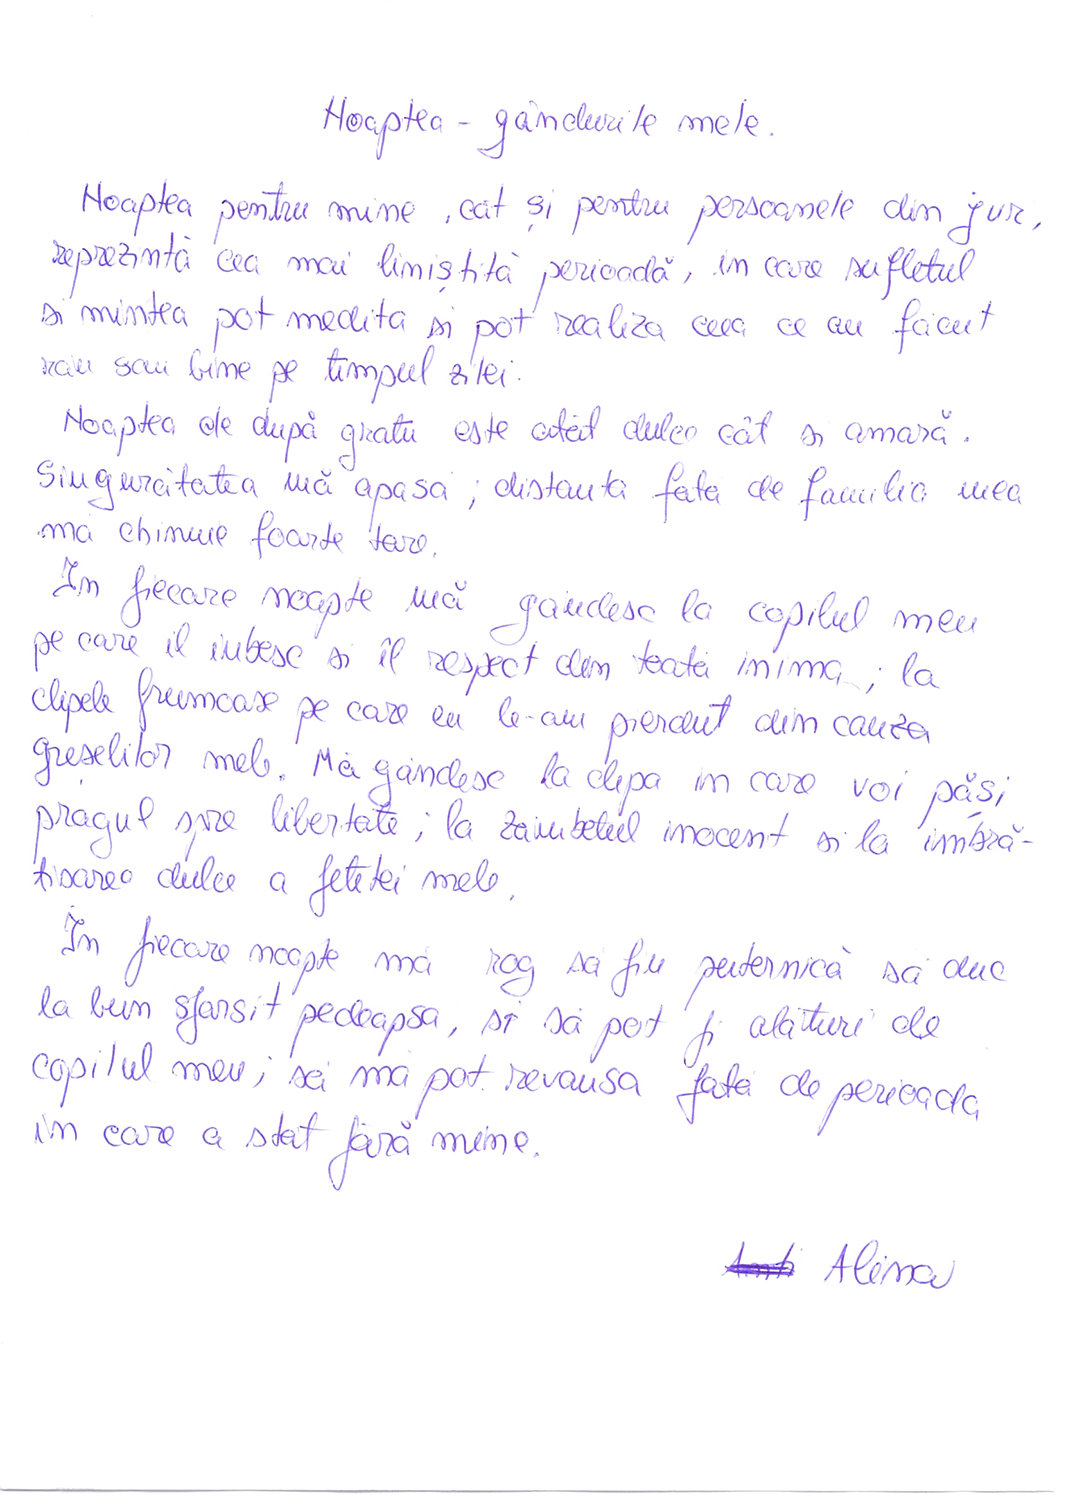 Noaptea - gândurile mele.
Noaptea pentru mine, cât și pentru persoanele din jur,
reprezintă cea mai liniștită perioadă, în care sufletul
si mintea pot medita si pot realiza ceea ce au făcut
rău sau bine pe timpul zilei.
Noaptea de după gratii este atât dulce cât si amară.
Singurătatea mă apasă; distanta fată de familia mea
mă chinuie foarte tare.
În fiecare noapte mă gândesc la copilul meu
pe care îl iubesc si îl respect din toată inima; la
clipele frumoase pe care eu le-am pierdut din cauza
greșelilor mele. Mă gândesc la clipa în care voi păși
pragul spre libertate; la zâmbetul inocent si la îmbră-
tisarea dulce a fetitei mele.
În fiecare noapte mă rog să fiu puternică să duc
la bun sfârsit pedeapsa, si să pot fi alături de
copilul meu; să mă pot revansa fată de perioada
în care a stat fără mine.
Alina